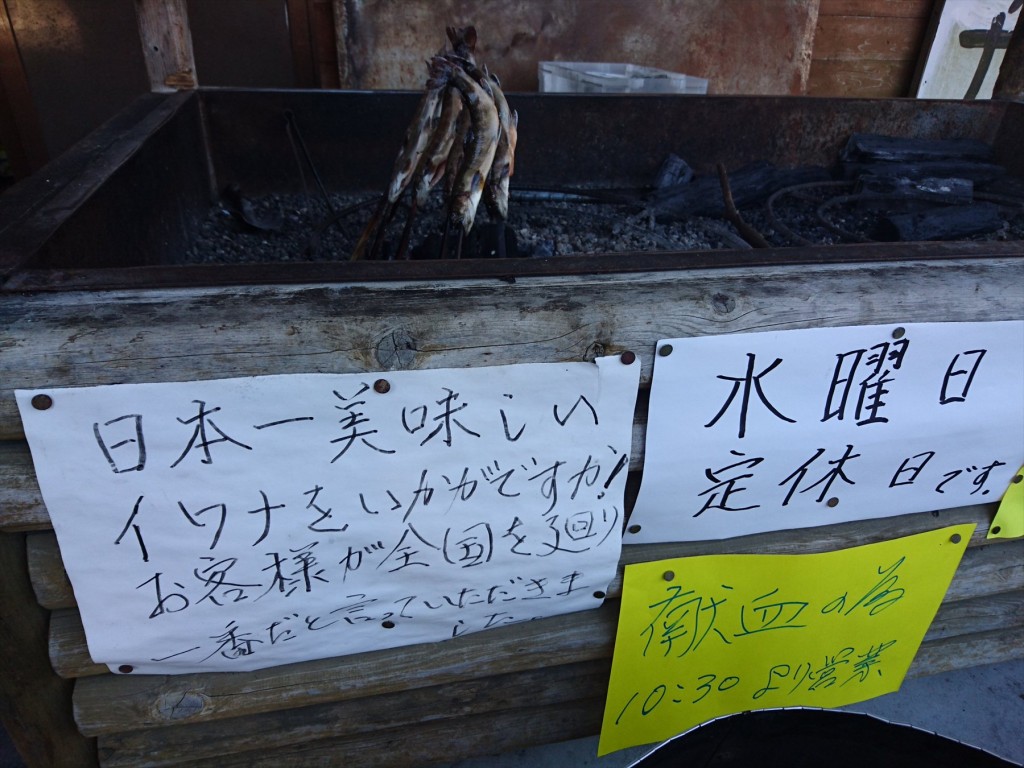 日本一美味しい
イワナをいかがですか!
お客様が全国を廻り
一番だと言っていただきま
した。
水曜日
定休日です.
献血の為
10:30より営業